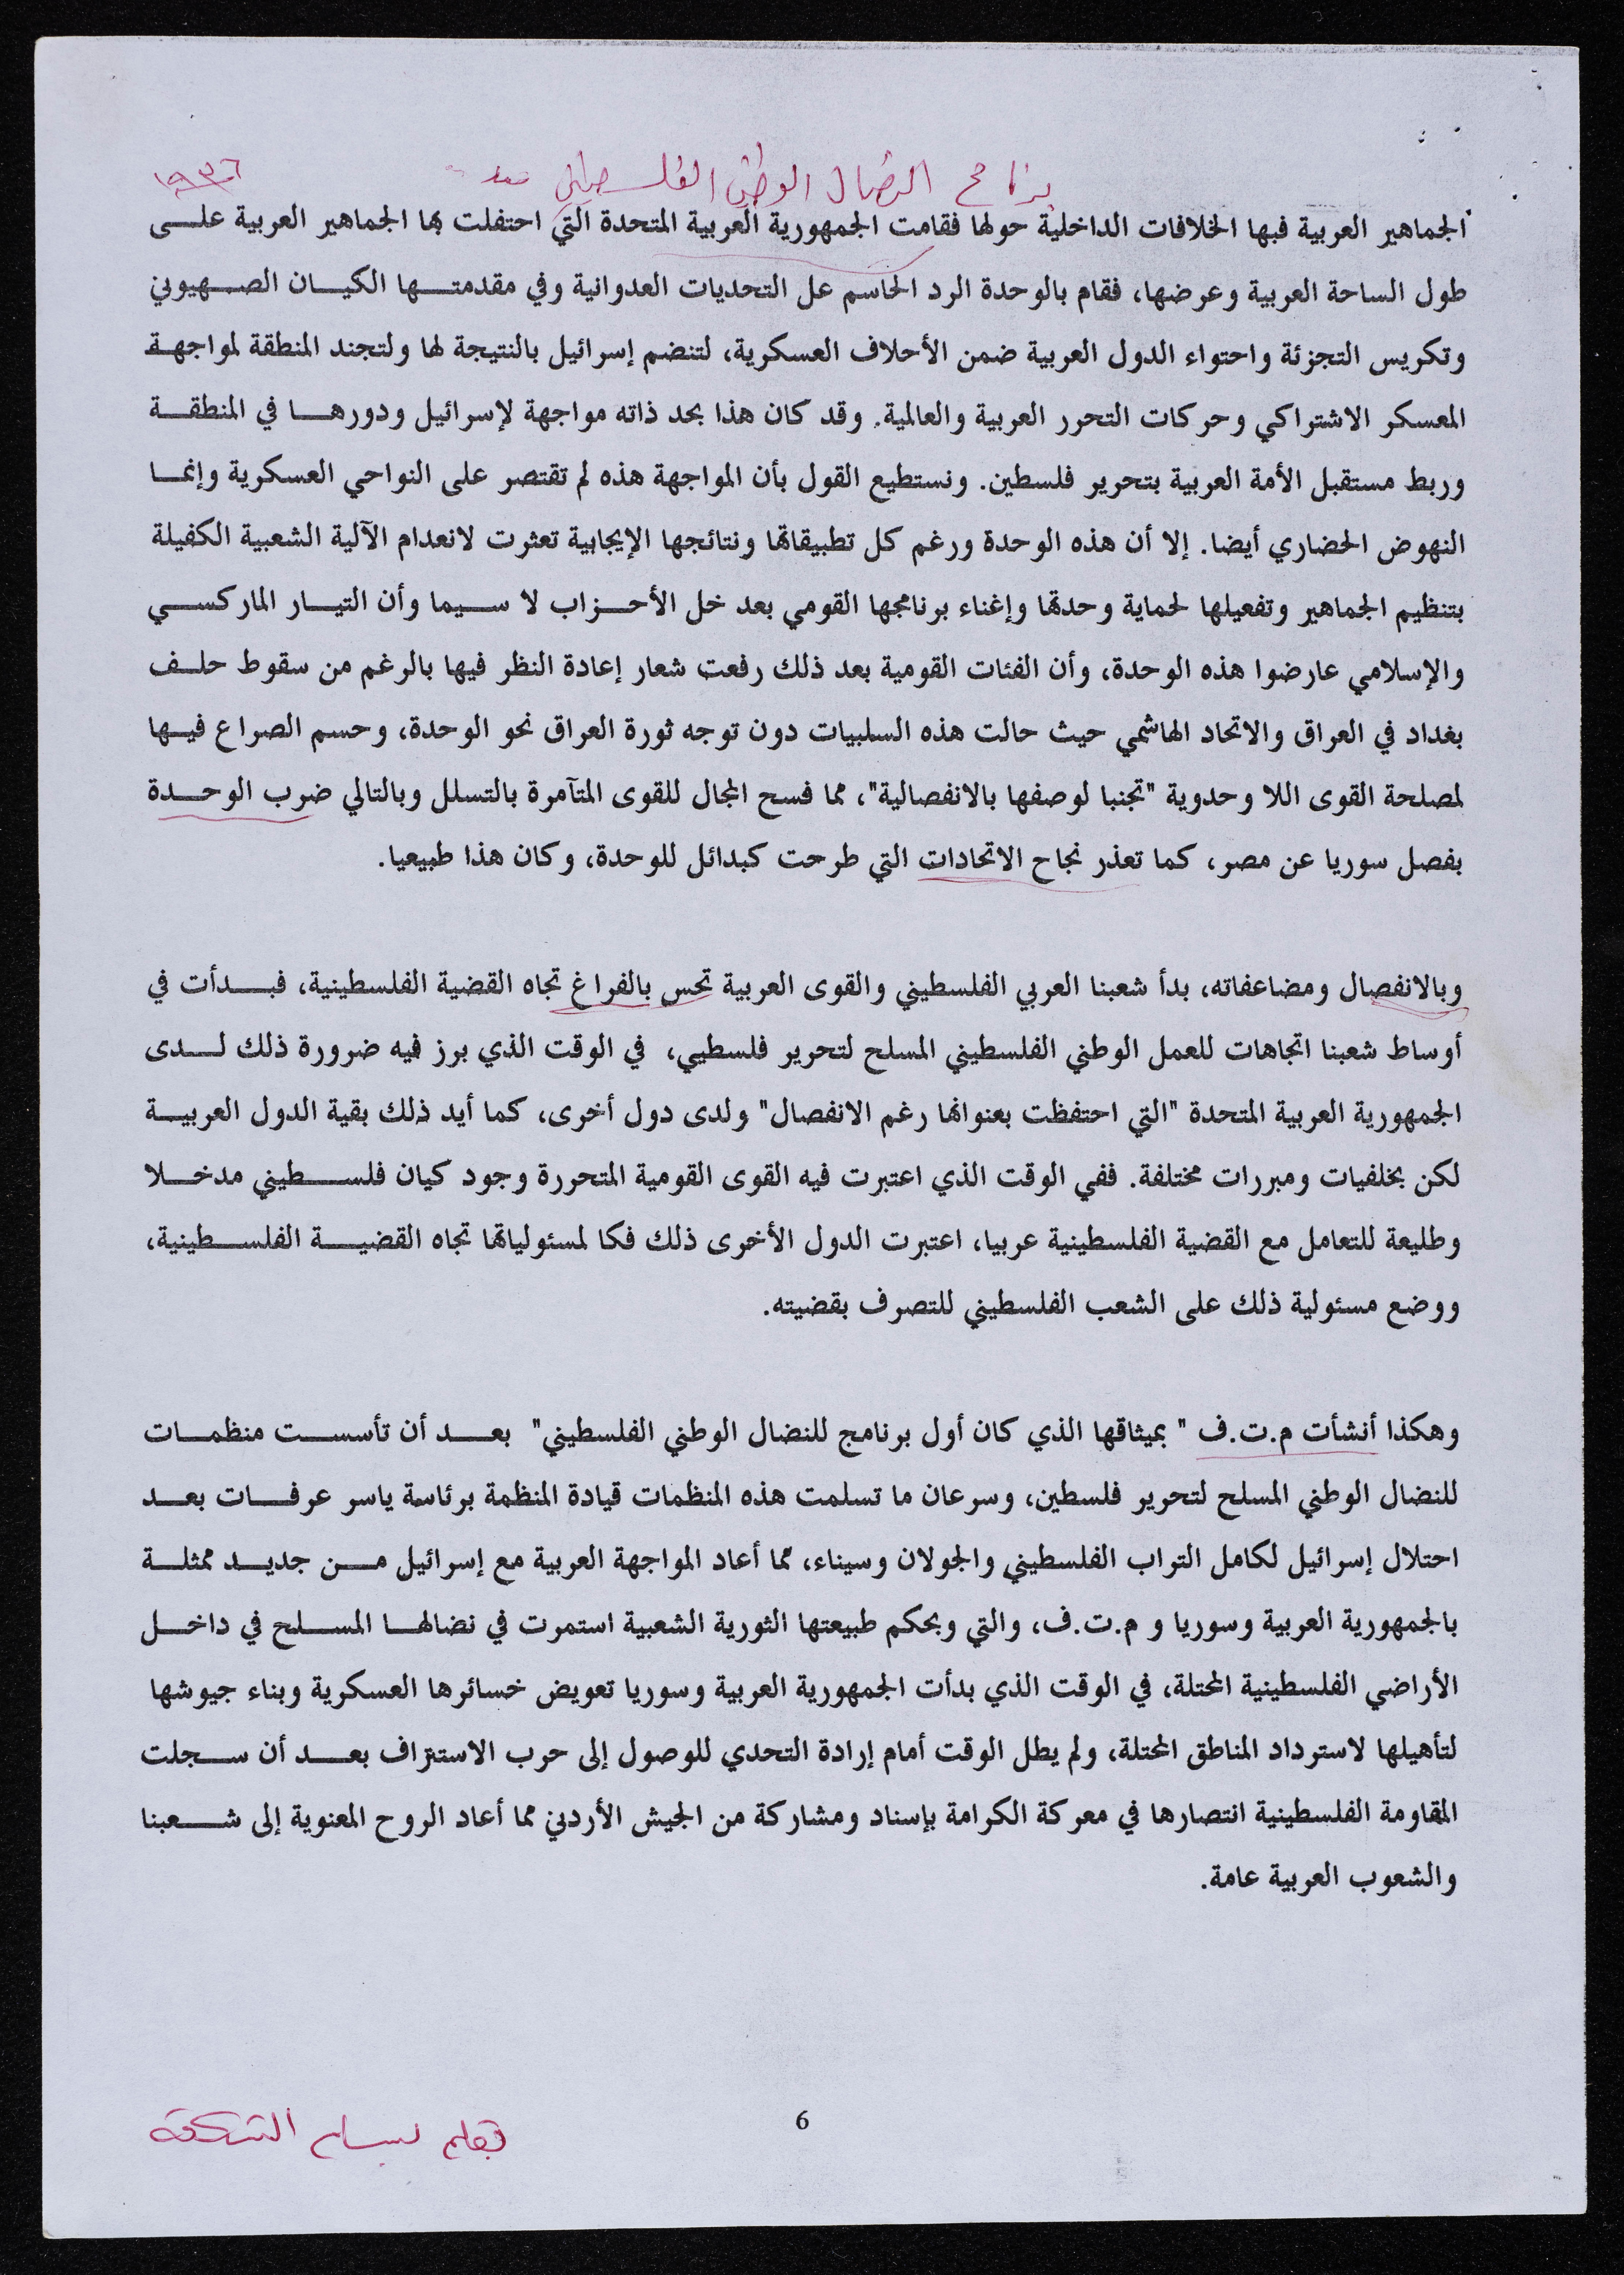 برنامج النضال الوطني الفلسطيني منذ ١٩٣٦
الجماهير العربية فبها الخلافات الداخلية حولها فقامت الجمهورية العربية المتحدة التي احتفلت بها الجماهير العربية على
طول الساحة العربية وعرضها، فقام بالوحدة الرد الحاسم عل التحديات العدوانية وفي مقدمتها الكيان الصهيوني
وتكريس التجزئة واحتواء الدول العربية ضمن الأحلاف العسكرية، لتنضم إسرائيل بالنتيجة لها ولتجند المنطقة لمواجهة
المعسكر الاشتراكي وحركات التحرر العربية والعالمية. وقد كان هذا بحد ذاته مواجهة لإسرائيل ودورها في المنطقة
وربط مستقبل الأمة العربية بتحرير فلسطين. ونستطيع القول بأن المواجهة هذه لم تقتصر على النواحي العسكرية وإنما
النهوض الحضاري أيضا. إلا أن هذه الوحدة ورغم كل تطبيقاتها ونتائجها الإيجابية تعثرت لانعدام الآلية الشعبية الكفيلة
بتنظيم الجماهير وتفعيلها لحماية وحدتها وإغناء برنامجها القومي بعد خل الأحزاب لا سيما وأن التيار الماركسي
والإسلامي عارضوا هذه الوحدة، وأن الفئات القومية بعد ذلك رفعت شعار إعادة النظر فيها بالرغم من سقوط حلف
بغداد في العراق والاتحاد الهاشمي حيث حالت هذه السلبيات دون توجه ثورة العراق نحو الوحدة، وحسم الصراع فيها
لمصلحة القوى اللا وحدوية "تجنبا لوصفها بالانفصالية"، مما فسح المجال للقوى المتآمرة بالتسلل وبالتالي ضرب الوحدة
بفصل سوريا عن مصر، كما تعذر نجاح الاتحادات التي طرحت كبدائل للوحدة، وكان هذا طبيعيا.
وبالانفصال ومضاعفاته، بدأ شعبنا العربي الفلسطيني والقوى العربية تحس بالفراغ تجاه القضية الفلسطينية، فبدأت في
أوساط شعبنا اتجاهات للعمل الوطني الفلسطيني المسلح لتحرير فلسطيي، في الوقت الذي برز فيه ضرورة ذلك لدى
الجمهورية العربية المتحدة "التي احتفظت بعنوانها رغم الانفصال" ولدى دول أخرى، كما أيد ذلك بقية الدول العربية
لكن بخلفيات ومبررات مختلفة. ففي الوقت الذي اعتبرت فيه القوى القومية المتحررة وجود كيان فلسطيني مدخلا
وطليعة للتعامل مع القضية الفلسطينية عربيا، اعتبرت الدول الأخرى ذلك فكا لمسئولياتها تجاه القضية الفلسطينية،
ووضع مسئولية ذلك على الشعب الفلسطيني للتصرف بقضيته.
وهكذا أنشأت م.ت.ف " بميثاقها الذي كان أول برنامج للنضال الوطني الفلسطيني" بعد أن تأسست منظمات
للنضال الوطني المسلح لتحرير فلسطين، وسرعان ما تسلمت هذه المنظمات قيادة المنظمة برئاسة ياسر عرفات بعد
احتلال إسرائيل لكامل التراب الفلسطيني والجولان وسيناء، مما أعاد المواجهة العربية مع إسرائيل من جديد ممثلة
بالجمهورية العربية وسوريا و م.ت.ف، والتي وبحكم طبيعتها الثورية الشعبية استمرت في نضالها المسلح في داخل
الأراضي الفلسطينية المحتلة، في الوقت الذي بدأت الجمهورية العربية وسوريا تعويض خسائرها العسكرية وبناء جيوشها
لتأهيلها لاسترداد المناطق المحتلة، ولم يطل الوقت أمام إرادة التحدي للوصول إلى حرب الاستنزاف بعد أن سجلت
المقاومة الفلسطينية انتصارها في معركة الكرامة بإسناد ومشاركة من الجيش الأردني مما أعاد الروح المعنوية إلى شعبنا
والشعوب العربية عامة.
6
بقلم بسام الشكعه